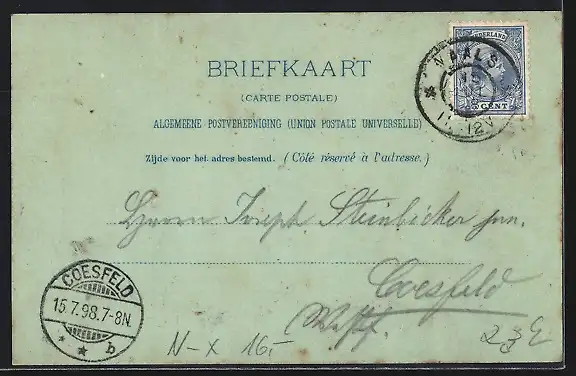 NEDERLAND
VAALS
12V
CENT
BRIEFKAART
(CARTE POSTALE)
ALGEMEENE POSTVEREENIGING (UNION POSTALE UNIVERSELLE)
Zijde voor het adres bestemd. (Côté réservé à l'adresse.)
Herrn Joseph Steinbicker jun.
Coesfeld
Westf.
COESFELD
15.7.98.7-8N.
* * b
N-X 16,-